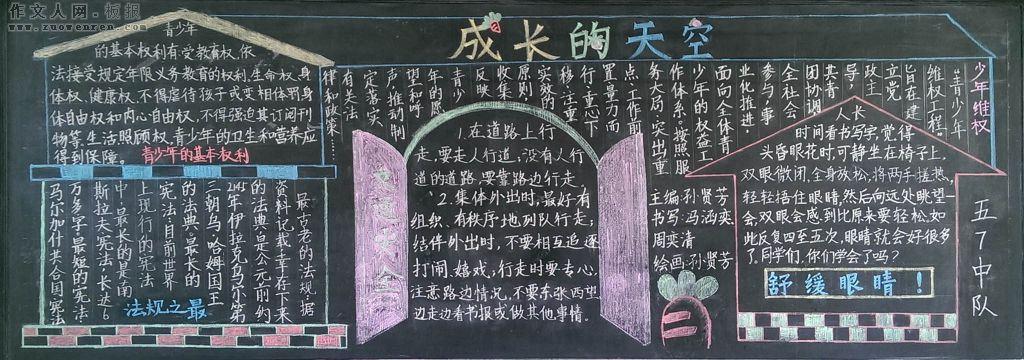 作文人网·板报
www.zuowenren.com
成长的天空
青少年
的基本权利有受教育权、依
法接受规定年限义务教育的权利、生命权、身
体权、健康权、不得虐待孩子或变相体罚、身
体自由权和内心自由权、不得强迫其订阅刊
物等、生活照顾权、青少年的卫生和营养应
得到保障。
青少年的基本权利
最古老的法规:据
资料记载,幸存下来
的法典是公元前约
伊拉克乌尔第
三朝乌·哈姆国王
的法典。最长的
宪法:目前世界
上现行的宪法
中,最长的是南
斯拉夫宪法,长达6
万多字。最短的宪法:
马尔加什共合国宪法
法规之最
少年维权
"青少年
维权工程"
旨在建
立党
政主
导,
共青
团协调,
全社会
参与,事
业化推进,
面向全体青
少年的权益工
作体系。按照服
务大局,突出重
点,工作力量前
置,重心下
移,注重
实效的
原则,
收集
反映
青少
年的愿
望和呼
声,推动制
定落实
有关法
律和政策。
1.在道路上行
走,要走人行道,没有人行
道的道路,要靠路边行走。
2.集体外出时,最好有
组织、有秩序地列队行走;
结伴外出时,不要相互追逐、
打闹、嬉戏,行走时要专心,
注意路边情况,不要东张西望、
边走边看书报或做其他事情。
主编:孙贤芳
书写:冯涵奕
周奕清
绘画:孙贤芳
二
人长
时间看书写字,觉得
头昏眼花时,可静坐在椅子上,
双眼微闭,全身放松,将两手搓热,
轻轻捂住眼睛,然后向远处眺望一
会,双眼会感到比原来要轻松。如
此反复四至五次,眼睛就会好很多
了。同学们,你们学会了吗?
舒缓眼睛!
五7中队